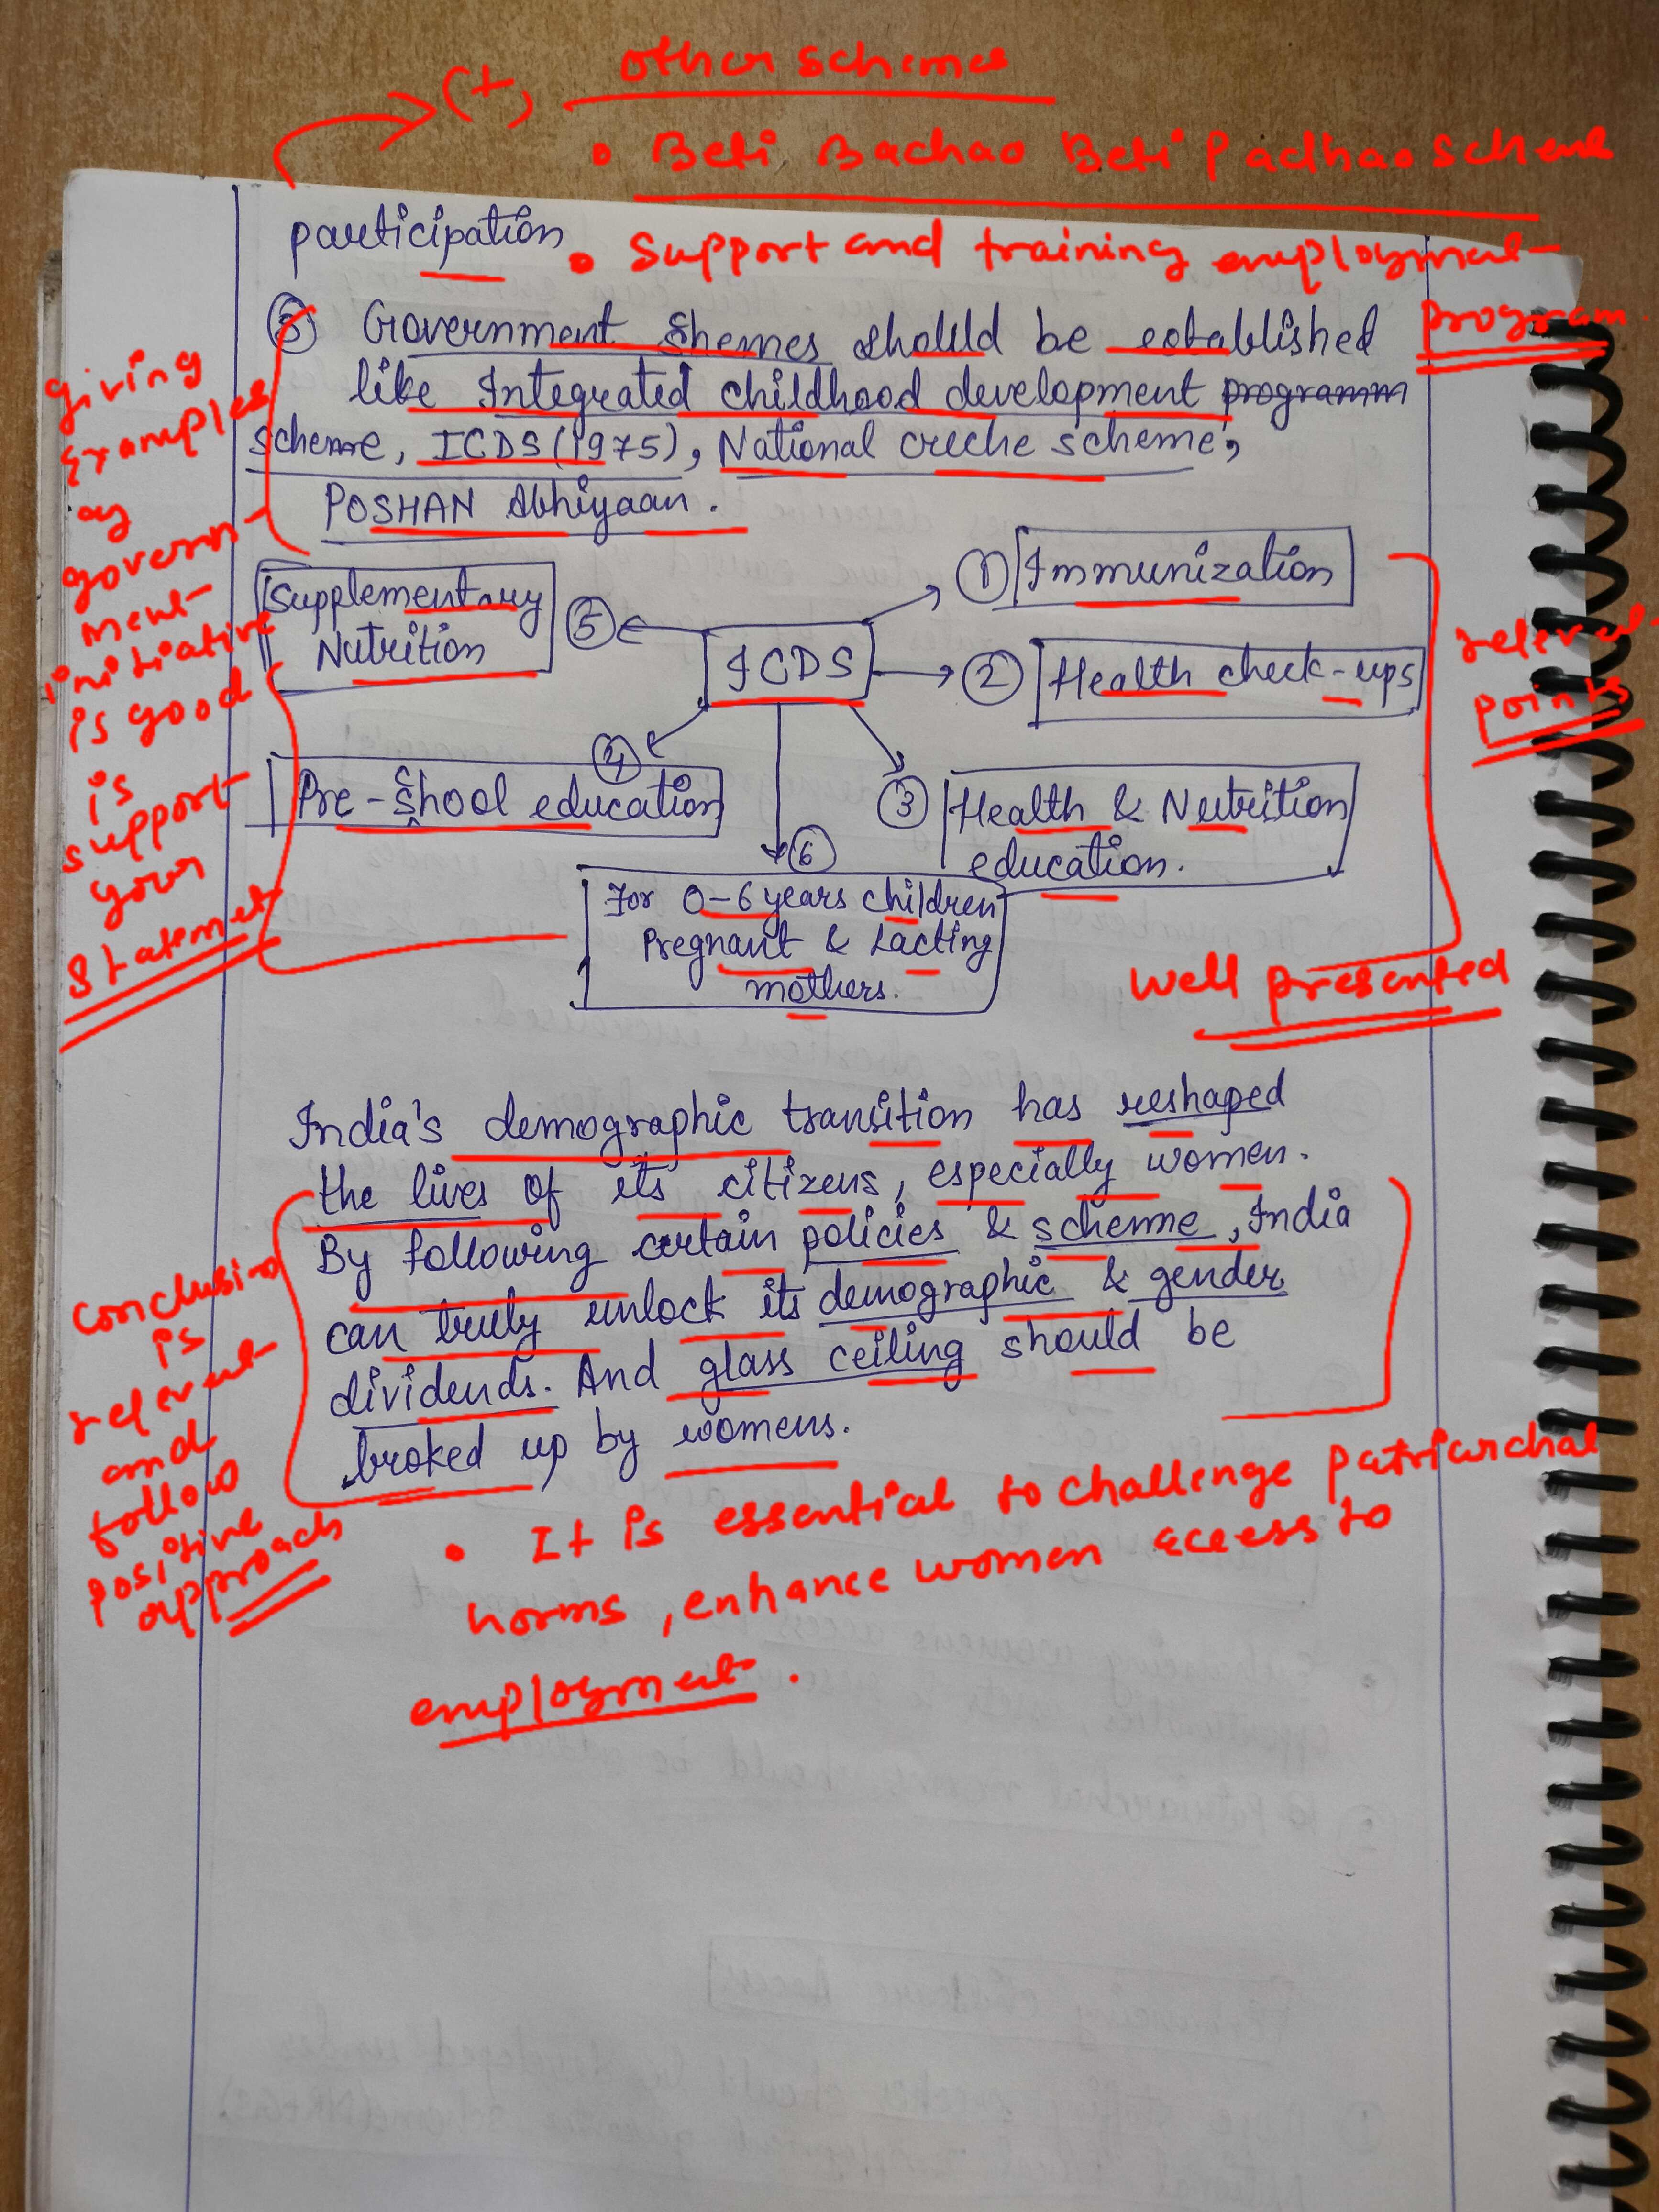 (+) other schemes
• Beti Bachao Beti Padhao scheme
participation
• Support and training employment
program.
③ Government Shemes should be established
like Integrated childhood development programm
scheme, ICDS (1975), National creche scheme,
POSHAN Abhiyaan.
giving
examples
of
govern-
ment
initiative
is good
is
support
your
statemet
Supplementary
Nutrition
⑤
ICDS
① Immunization
② Health check-ups
relevent
points
④
Pre-School education
③ Health & Nutrition
education.
⑥
For 0-6 years children
Pregnant & Lacting
mothers.
well presented
India's demographic transition has reshaped
the lives of its citizens, especially women.
By following certain policies & scheme, India
can truly unlock its demographic & gender
dividends. And glass ceiling should be
broked up by womens.
conclusion
is
relevent
and
follow
positive
approach
• It is essential to challenge patriarchal
norms, enhance women acess to
employment.